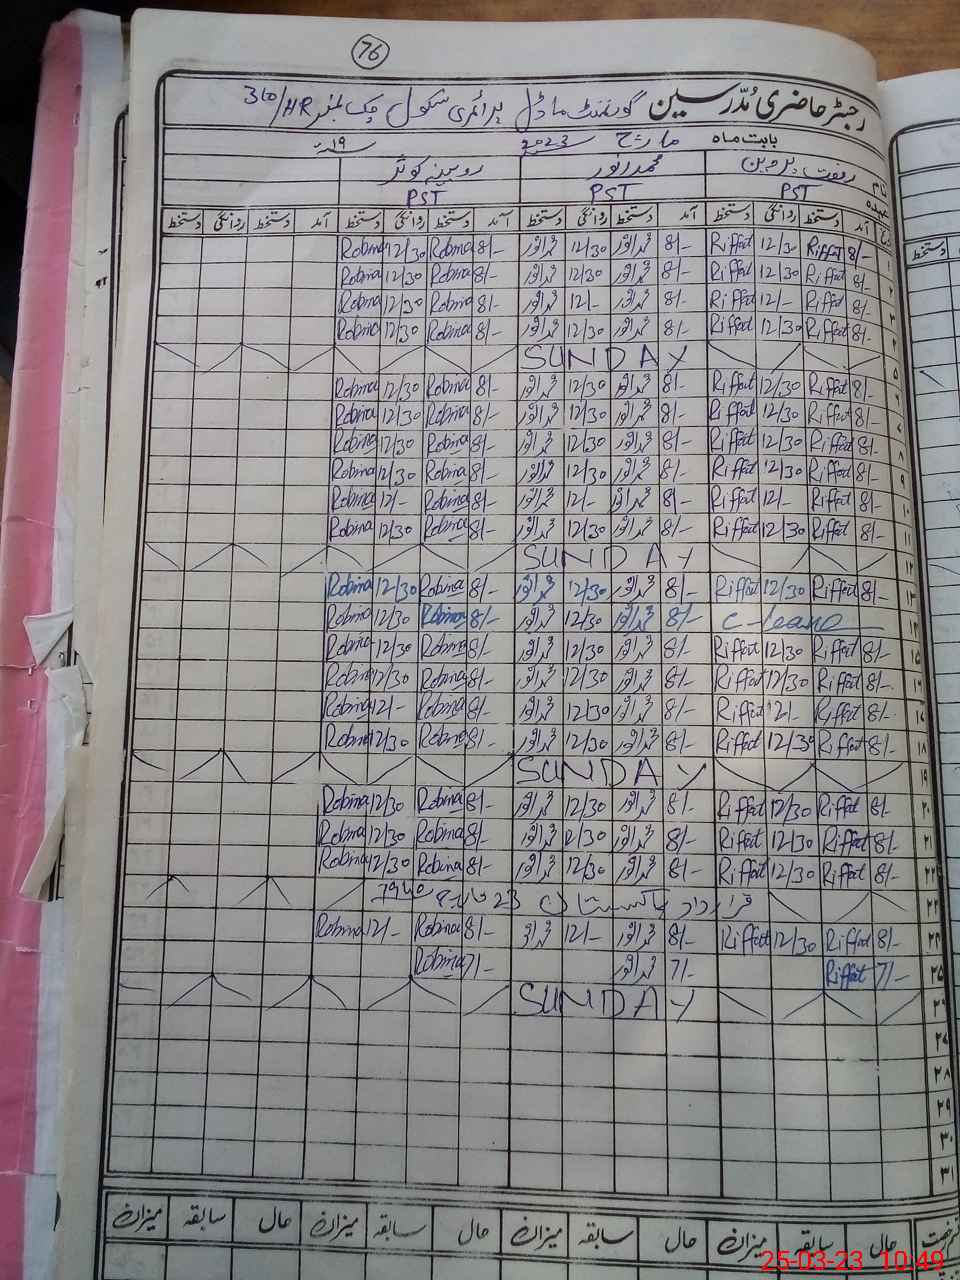 76
رجسٹر حاضری مُدّرسین گورنمنٹ ماڈل پرائمری سکول چک نمبر 316/HR
بابت ماہ مارچ 2023 ۱۹ء
نام رفعت پروین محمد انور روبینہ کوثر
عہدہ PST PST PST
تاریخ آمد دستخط روانگی دستخط آمد دستخط روانگی دستخط آمد دستخط روانگی دستخط آمد دستخط روانگی دستخط
۱ 8/- Riffat 12/30 Riffat 8/- محمد انور 12/30 محمد انور 8/- Robina 12/30 Robina
۲ 8/- Riffat 12/30 Riffat 8/- محمد انور 12/30 محمد انور 8/- Robina 12/30 Robina
۳ 8/- Riffat 12/- Riffat 8/- محمد انور 12/- محمد انور 8/- Robina 12/30 Robina
۴ 8/- Riffat 12/30 Riffat 8/- محمد انور 12/30 محمد انور 8/- Robina 12/30 Robina
۵ SUNDAY
۶ 8/- Riffat 12/30 Riffat 8/- محمد انور 12/30 محمد انور 8/- Robina 12/30 Robina
۷ 8/- Riffat 12/30 Riffat 8/- محمد انور 12/30 محمد انور 8/- Robina 12/30 Robina
۸ 8/- Riffat 12/30 Riffat 8/- محمد انور 12/30 محمد انور 8/- Robina 12/30 Robina
۹ 8/- Riffat 12/30 Riffat 8/- محمد انور 12/30 محمد انور 8/- Robina 12/30 Robina
۱۰ 8/- Riffat 12/- Riffat 8/- محمد انور 12/- محمد انور 8/- Robina 12/- Robina
۱۱ 8/- Riffat 12/30 Riffat 8/- محمد انور 12/30 محمد انور 8/- Robina 12/30 Robina
۱۲ SUNDAY
۱۳ 8/- Riffat 12/30 Riffat 8/- محمد انور 12/30 محمد انور 8/- Robina 12/30 Robina
۱۴ C-leave 8/- محمد انور 12/30 محمد انور 8/- Robina 12/30 Robina
۱۵ 8/- Riffat 12/30 Riffat 8/- محمد انور 12/30 محمد انور 8/- Robina 12/30 Robina
۱۶ 8/- Riffat 12/30 Riffat 8/- محمد انور 12/30 محمد انور 8/- Robina 12/30 Robina
۱۷ 8/- Riffat 12/- Riffat 8/- محمد انور 12/30 محمد انور 8/- Robina 12/- Robina
۱۸ 8/- Riffat 12/30 Riffat 8/- محمد انور 12/30 محمد انور 8/- Robina 12/30 Robina
۱۹ SUNDAY
۲۰ 8/- Riffat 12/30 Riffat 8/- محمد انور 12/30 محمد انور 8/- Robina 12/30 Robina
۲۱ 8/- Riffat 12/30 Riffat 8/- محمد انور 12/30 محمد انور 8/- Robina 12/30 Robina
۲۲ 8/- Riffat 12/30 Riffat 8/- محمد انور 12/30 محمد انور 8/- Robina 12/30 Robina
۲۳ قرارداد پاکستان 23 مارچ 1940
۲۴ 8/- Riffat 12/30 Riffat 8/- محمد انور 12/- محمد انور 8/- Robina 12/- Robina
۲۵ 7/- Riffat 7/- محمد انور 7/- Robina
۲۶ SUNDAY
۲۷
۲۸
۲۹
۳۰
۳۱
رخصت حال سابقہ میزان حال سابقہ میزان حال سابقہ میزان حال سابقہ میزان
25-03-23 10:49